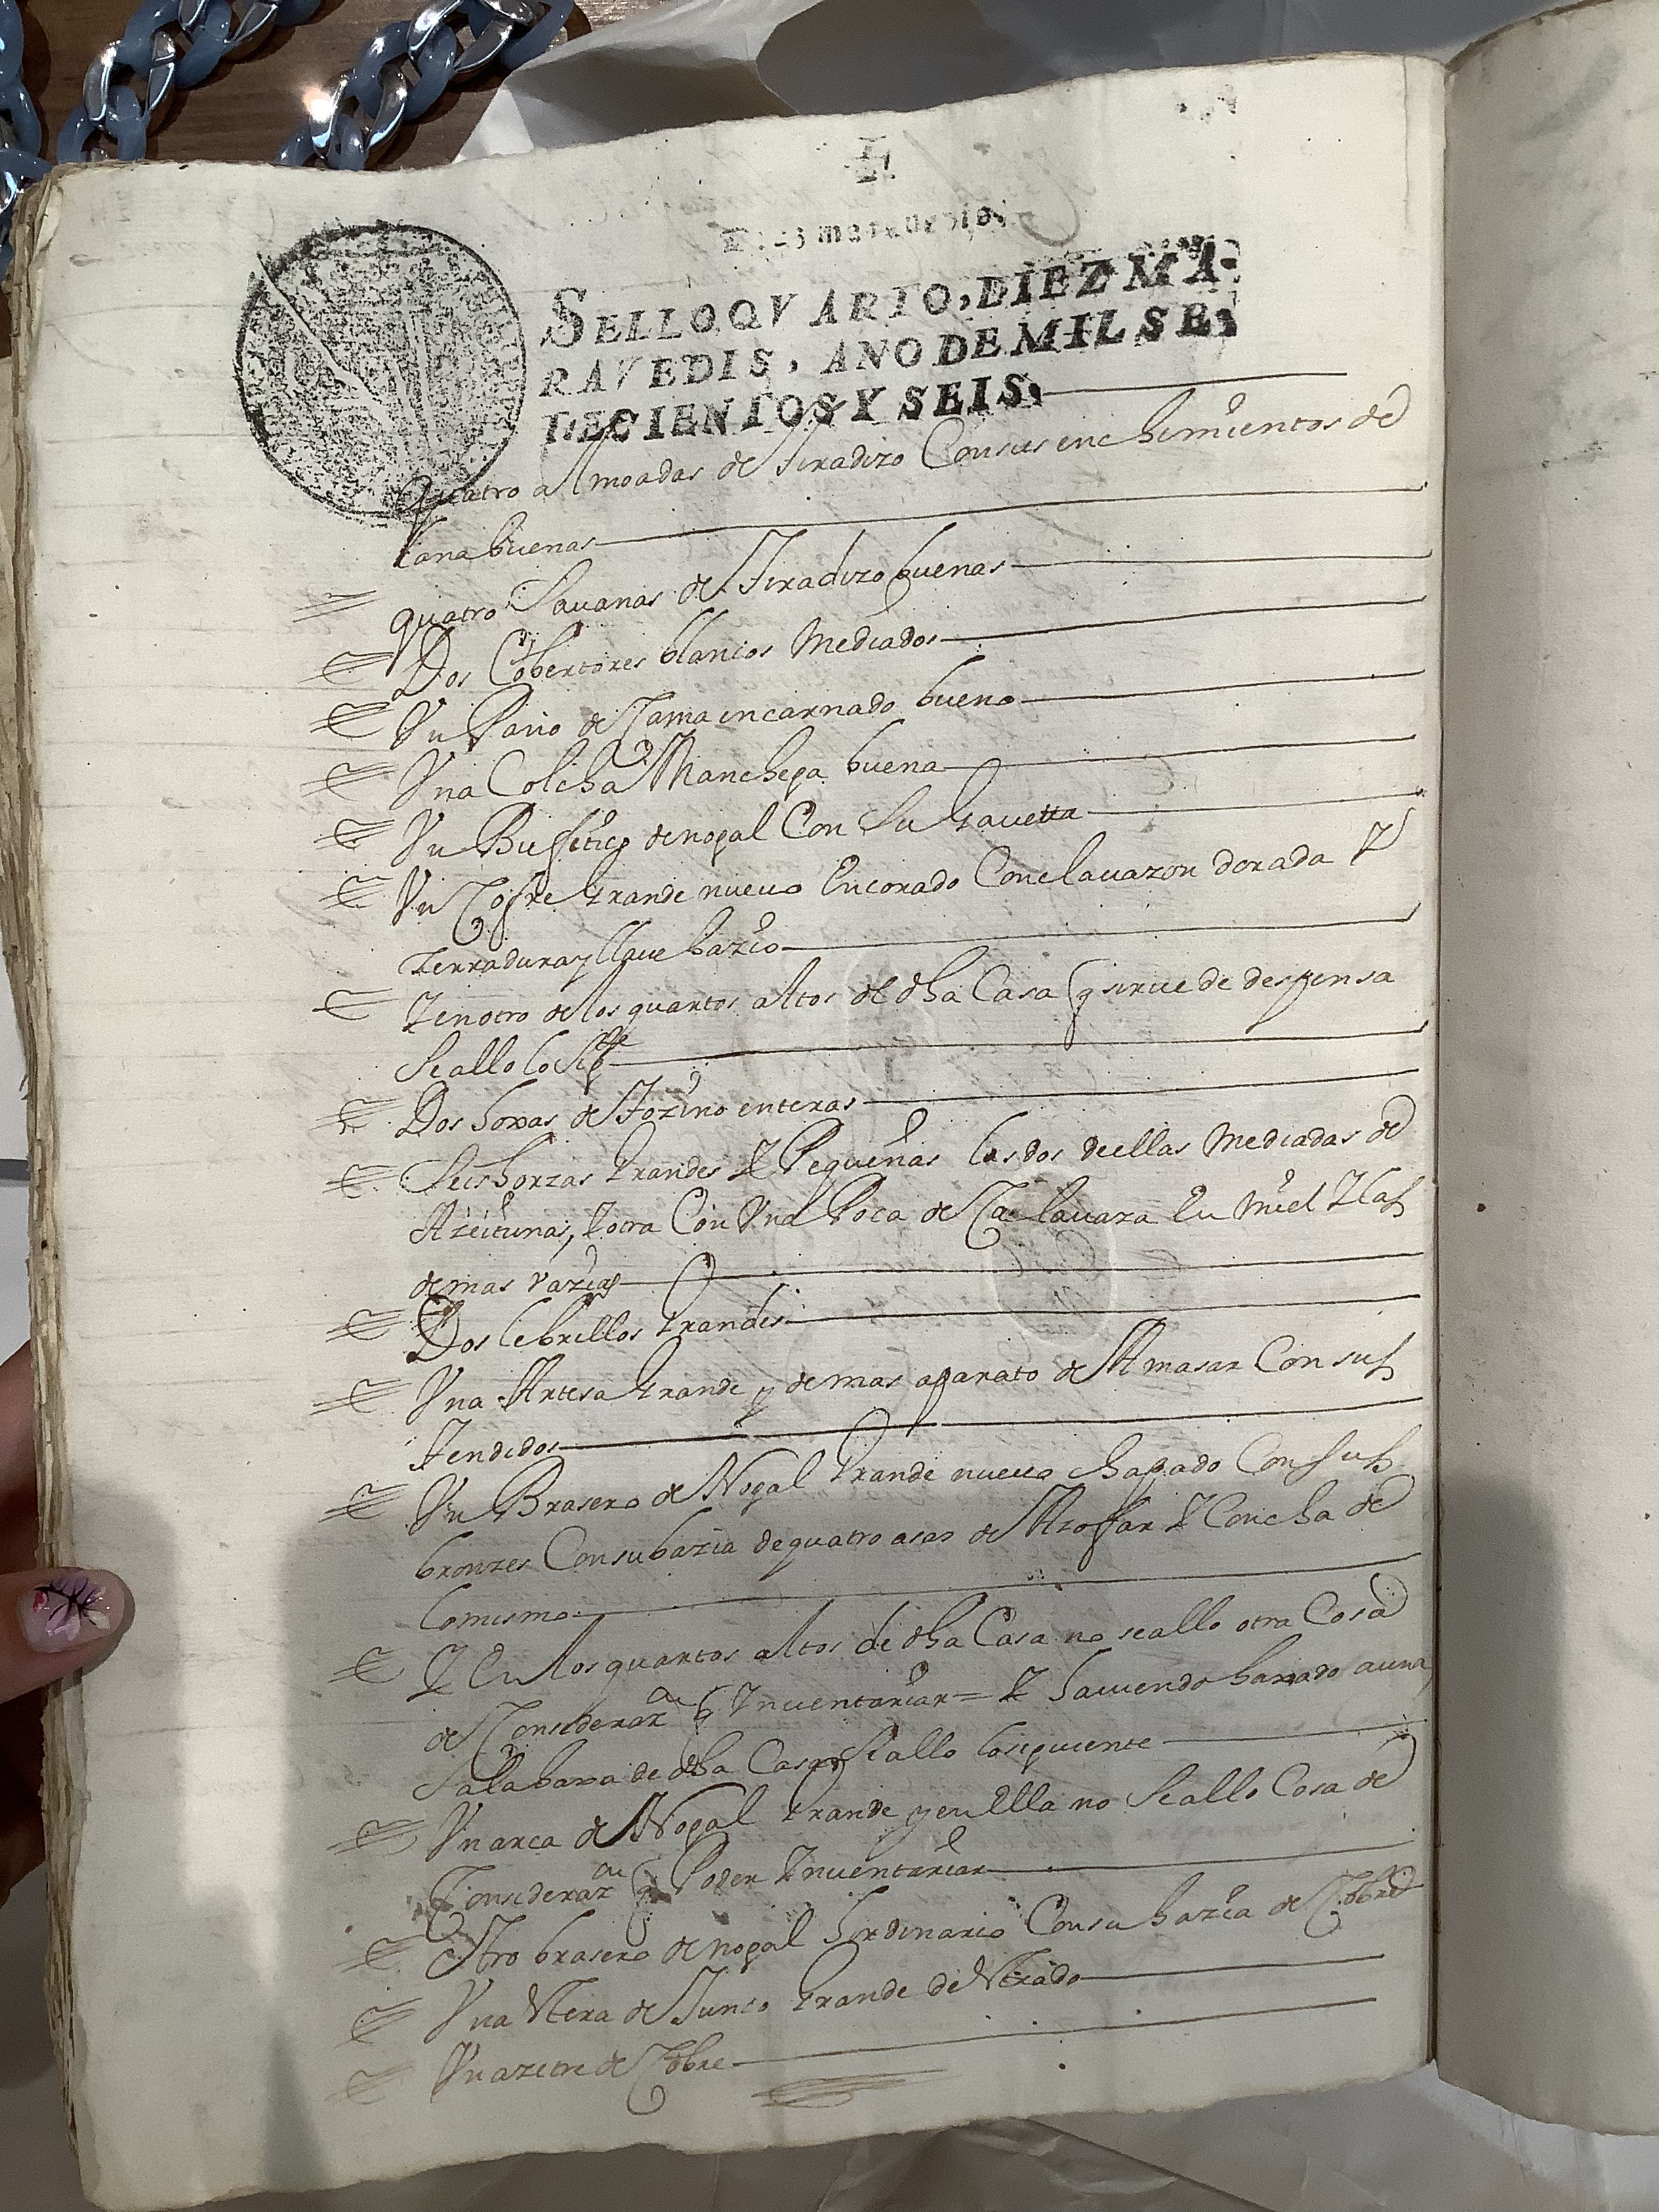 SELLO QVARTO, DIEZ MA-
RAVEDIS, AÑO DE MIL SE-
TECIENTOS Y SEIS.
quatro almoadas de tiradizo Con sus enchimientos de
lana buenas
quatro Sauanas de Tiradizo buenas
Dos Cobertores blancos Mediados
Vn Paño de Cama encarnado bueno
Vna Colcha Manchega buena
Vn Bufetico de nogal Con Su gauetta
Vn Cofre grande nueuo Encorado Con clauazon dorada Y
zerradura y llaue bazio
Y en otro de los quartos altos de dha Casa q sirue de despensa
Se allo lo Sigte
Dos hoxas de Tozino enteras
Seis horzas grandes Y Pequeñas las dos de ellas Mediadas de
Azeitunas, Y otra Con Vna Poca de Calauaza En Miel Y las
demas vazias
Dos lebrillos grandes
Vna Artesa grande y demas aparato de Amasar Con sus
Tendidos
Vn Brasero de Nogal grande nueuo chapado Con Sus
bronzes Con su bazia de quatro asas de Azofar Y Concha de
lo mismo
Y En los quartos altos de dha Casa no se allo otra Cosa
de Considerazon q Inuentariar = Y hauiendo baxado a una
Sala baxa de dha Casa Se allo lo siguiente
Vn arca de Nogal grande y en Ella no Se allo Cosa de
Considerazon q Poder Inuentariar
Otro brasero de nogal hordinario Con su bazia de Cobre
Vna Estera de Junco grande de Estrado
Vn azetre de Cobre